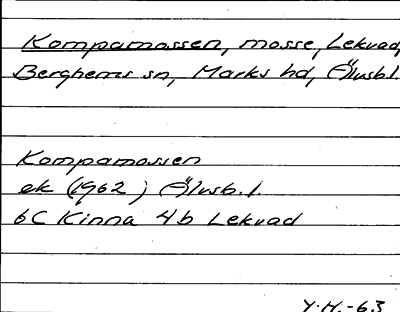 Kompamossen, mosse, Lekvad,
Berghems sn, Marks hd, Älvsb.l.
Kompamossen
ek (1962) Älvsb.l.
6C Kinna 4b Lekvad
Y.H.-63